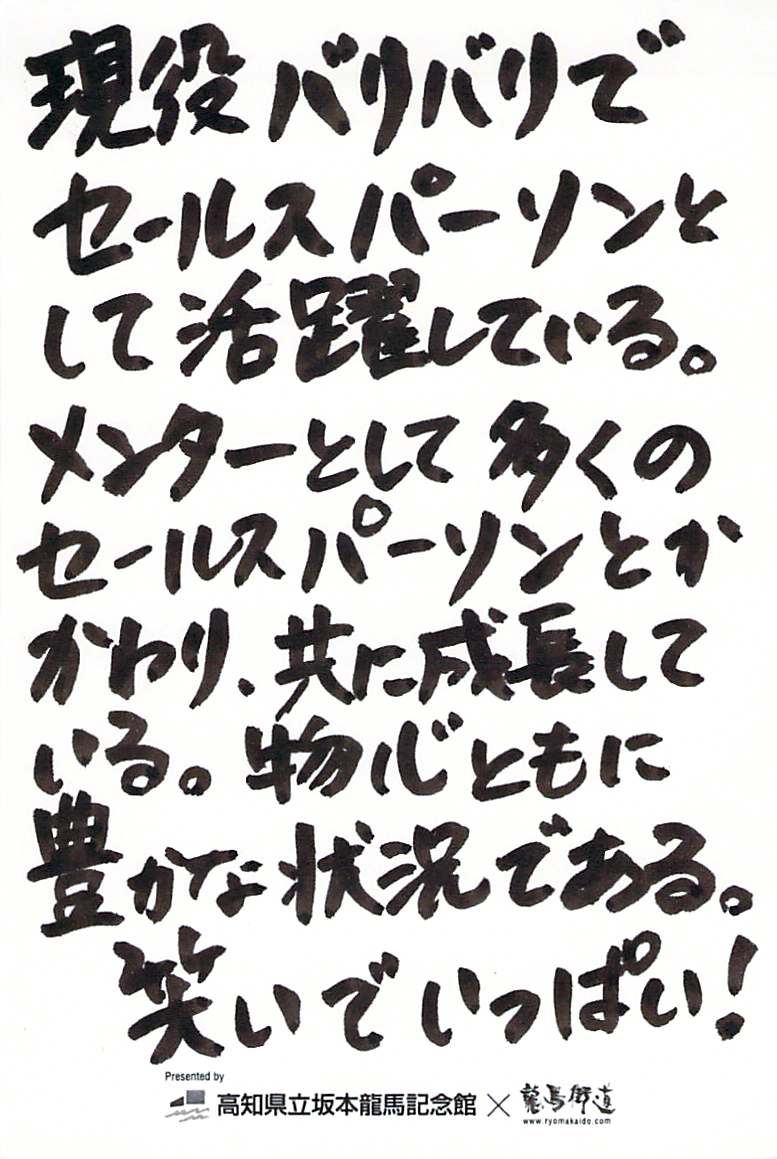 現役バリバリで
セールスパーソンと
して活躍している。
メンターとして多くの
セールスパーソンとか
かわり、共に成長して
いる。物心ともに
豊かな状況である。
笑いでいっぱい!
Presented by
高知県立坂本龍馬記念館×龍馬街道
www.ryomakaido.com